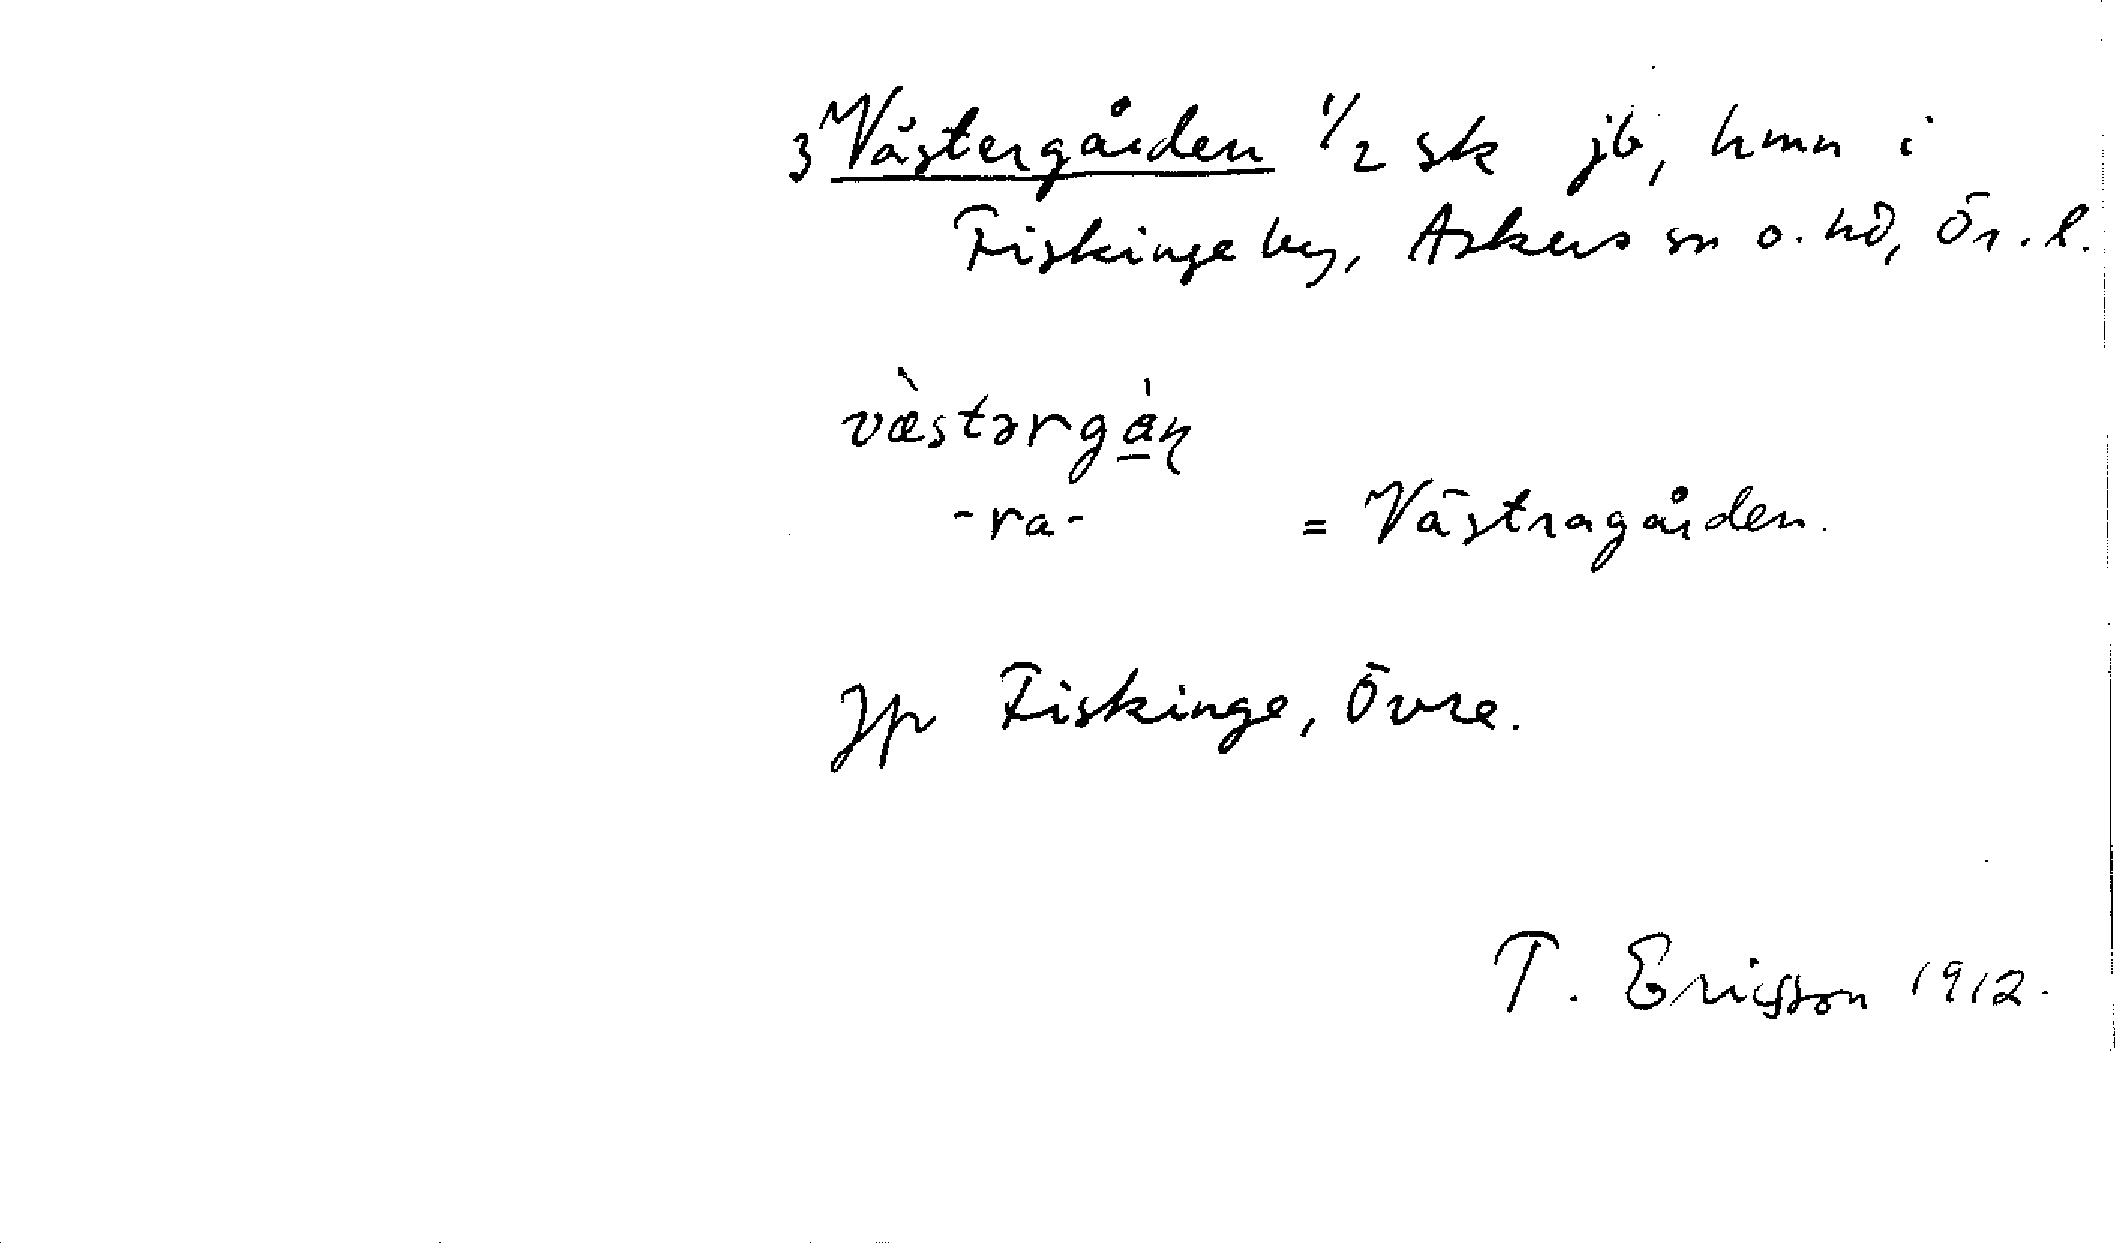 3 Västergården 1/2 sk jb, hmn i
Fiskinge by, Askers sn o. hd, Ör. l.
væ̀stərgå̱̀ɳ
-ra- = Västragården.
Jfr Fiskinge, Övre.
T. Ericsson 1912.